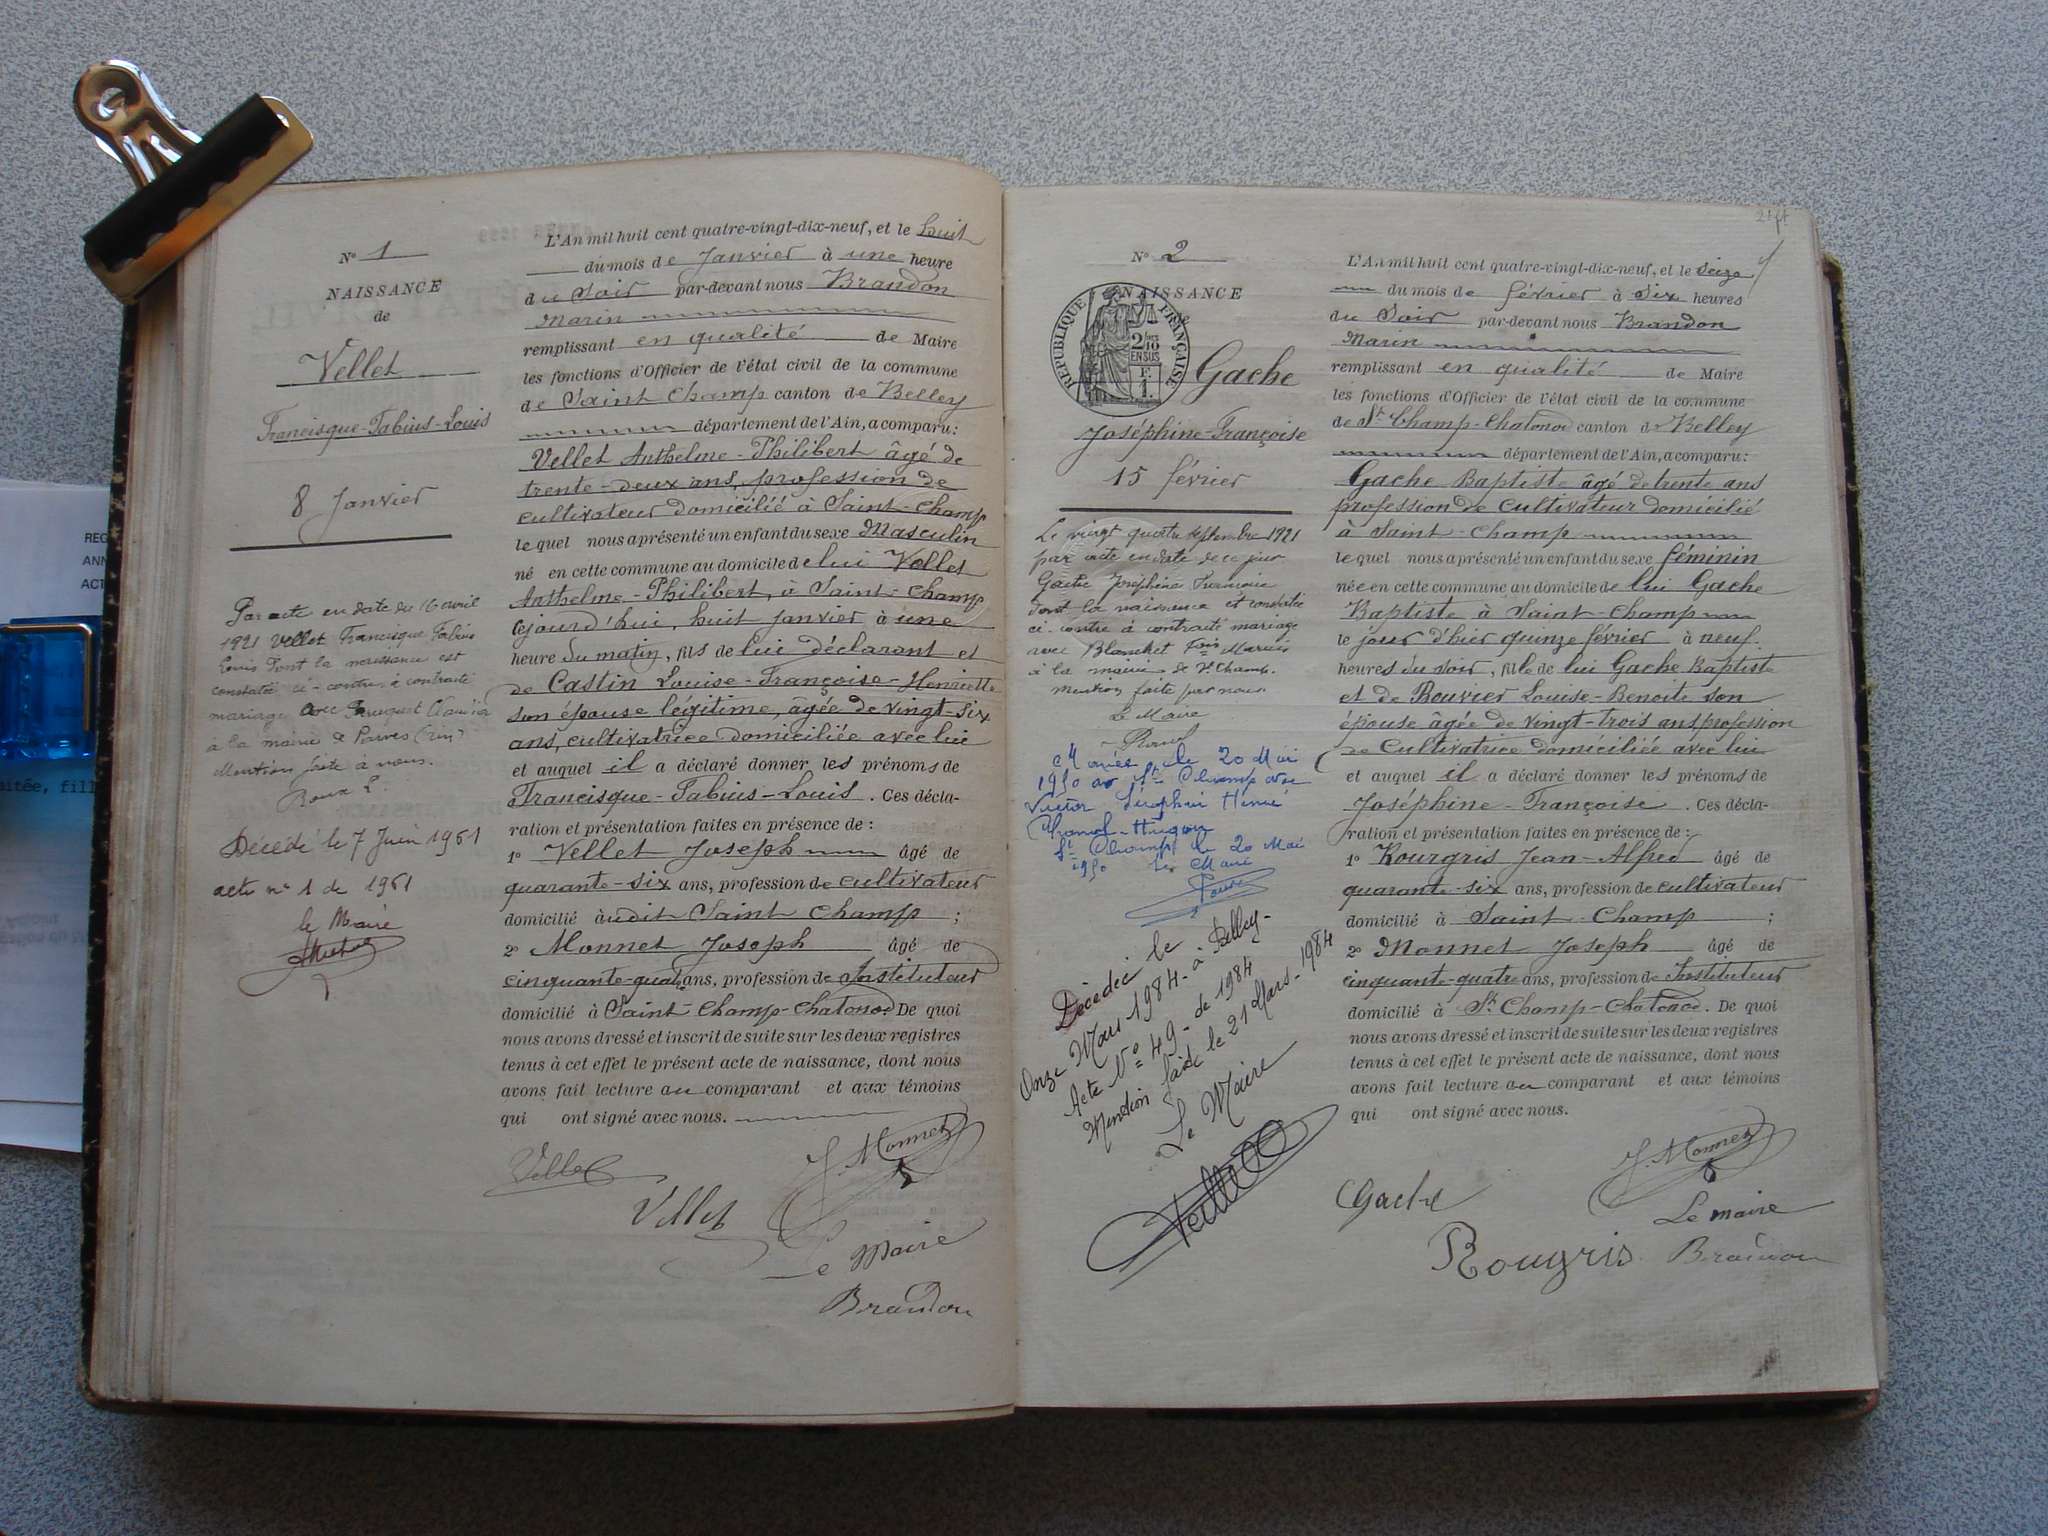 N° 1
NAISSANCE
de
Vellet
Francisque-Fabius-Louis
8 Janvier
Par acte en date du 16 avril
1921 Vellet Francisque Fabius
Louis dont la naissance est
constatée ci-contre a contracté
mariage avec
à la mairie de Parves (Ain)
Mention faite à nous.
Roux L.
Décédé le 7 Juin 1961
acte n° 1 de 1961
le Maire
L'An mil huit cent quatre-vingt-dix-neuf, et le huit
du mois de Janvier à une heure
du Soir par-devant nous Brandon
Marin
remplissant en qualité de Maire
les fonctions d'Officier de l'état civil de la commune
de Saint Champ canton de Belley
département de l'Ain, a comparu:
Vellet Anthelme-Philibert âgé de
trente-deux ans, profession de
cultivateur domicilié à Saint-Champ
lequel nous a présenté un enfant du sexe Masculin
né en cette commune au domicile de lui Vellet
Anthelme-Philibert, à Saint-Champ
cejourd'hui, huit janvier à une
heure du matin, fils de lui déclarant et
de Castin Louise-Françoise-Henriette
son épouse légitime, âgée de vingt-six
ans, cultivatrice domiciliée avec lui
et auquel il a déclaré donner les prénoms de
Francisque-Fabius-Louis. Ces décla-
ration et présentation faites en présence de:
1° Vellet Joseph âgé de
quarante-six ans, profession de cultivateur
domicilié àudit Saint Champ;
2° Monnet Joseph âgé de
cinquante-quat ans, profession de Instituteur
domicilié à Saint-Champ-Chatonod De quoi
nous avons dressé et inscrit de suite sur les deux registres
tenus à cet effet le présent acte de naissance, dont nous
avons fait lecture au comparant et aux témoins
qui ont signé avec nous.
Vellet
J. Monnet
Vellet
Le Maire
Brandon
N° 2
NAISSANCE
de
RÉPUBLIQUE FRANÇAISE
2/10
EN SUS
F.
1.
Gache
Joséphine-Françoise
15 février
Le vingt quatre septembre 1921
par acte en date de ce jour
Gache Joséphine Françoise
dont la naissance est constatée
ci-contre à contracté mariage
avec Blanchet Fois Marius
à la mairie de St Champ.
Mention faite par nous
Le Maire
Mariée le 20 Mai
1950 à St Champ avec
Victor Séraphin
St Champ le 20 Mai
1950 le Maire
Décédée le
Onze Mars 1984 - à Belley -
Acte N° 49 - de 1984
Mention faite le 21 Mars - 1984
Le Maire
L'An mil huit cent quatre-vingt-dix-neuf, et le Seize
du mois de février à Six heures
du Soir par-devant nous Brandon
Marin
remplissant en qualité de Maire
les fonctions d'Officier de l'état civil de la commune
de St Champ-Chatonod canton de Belley
département de l'Ain, a comparu:
Gache Baptiste âgé de trente ans
profession de cultivateur domicilié
à Saint-Champ
lequel nous a présenté un enfant du sexe féminin
née en cette commune au domicile de lui Gache
Baptiste à Saint-Champ
le jour d'hier quinze février à neuf
heures du soir, fille de lui Gache Baptiste
et de Bouvier Louise-Benoite son
épouse âgée de vingt-trois ans profession
de Cultivatrice domiciliée avec lui
et auquel il a déclaré donner les prénoms de
Joséphine-Françoise. Ces décla-
ration et présentation faites en présence de:
1° Rougris Jean-Alfred âgé de
quarante-six ans, profession de cultivateur
domicilié à Saint-Champ;
2° Monnet Joseph âgé de
cinquante-quatre ans, profession de Instituteur
domicilié à St Champ-Chatonod. De quoi
nous avons dressé et inscrit de suite sur les deux registres
tenus à cet effet le présent acte de naissance, dont nous
avons fait lecture au comparant et aux témoins
qui ont signé avec nous.
Gache
J. Monnet
Le maire
Rougris
Brandon